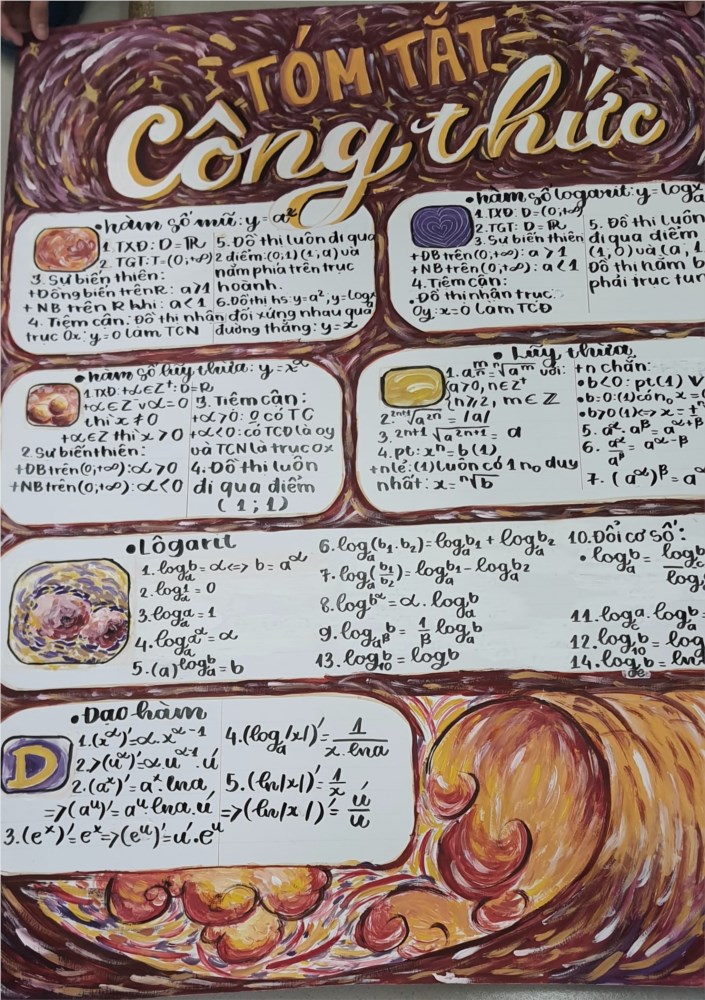 TÓM TẮT
Công thức
• hàm số mũ: y = aˣ
1. TXĐ: D = ℝ
2. TGT: T = (0; +∞)
3. Sự biến thiên:
+ Đồng biến trên R: a>1
+ NB trên R khi: a<1
4. Tiệm cận: Đồ thị nhận
trục Ox: y = 0 làm TCN
5. Đồ thị luôn đi qua
2 điểm: (0;1) (1;a) và
nằm phía trên trục
hoành.
6. Đồ thị hs: y=aˣ, y=logₐx
đối xứng nhau qua
đường thẳng: y = x
• hàm số logarit: y = logₐx
1. TXĐ: D = (0;+∞)
2. TGT: D = ℝ
3. Sự biến thiên
+ ĐB trên (0;+∞): a>1
+ NB trên (0;+∞): a<1
4. Tiệm cận:
• Đồ thị nhận trục
Oy: x=0 làm TCĐ
5. Đồ thị luôn
đi qua điểm
(1;0) và (a;1
Đồ thị nằm b
phải trục tun
• hàm số lũy thừa: y = x^α
1. TXĐ: +α∈Z⁺: D=R
+α∈Z⁻ ∨ α=0
thì x ≠ 0
+α∈Z thì x > 0
2. Sự biến thiên:
+ĐB trên (0;+∞): α>0
+NB trên (0;+∞): α<0
3. Tiệm cận:
+α>0: 0 có TC
+α<0: có TCĐ là oy
và TCN là trục Ox
4. Đồ thị luôn
đi qua điểm
(1;1)
• Lũy thừa
1. a^(m/n) = ⁿ√aᵐ với:
{a>0, n∈Z⁺
{n≥2, m∈Z
2. ²ⁿ√a²ⁿ = |a|
3. ²ⁿ⁺¹√a²ⁿ⁺¹ = a
4. pt: xⁿ = b (1)
+n lẻ: (1) luôn có 1 n₀ duy
nhất: x = ⁿ√b
+n chẵn:
• b<0: pt(1) V
• b=0: (1) có n₀ x =
• b>0 (1) <=> x = ±ⁿ
5. a^α. a^β = a^(α+β)
6. a^α/a^β = a^(α-β)
7. (a^α)^β = a^α
• Lôgarit
1. logₐb = α <=> b = a^α
2. logₐ1 = 0
3. logₐa = 1
4. logₐa^α = α
5. (a)^logₐb = b
6. logₐ(b₁.b₂) = logₐb₁ + logₐb₂
7. logₐ(b₁/b₂) = logₐb₁ - logₐb₂
8. logₐb^α = α. logₐb
9. log_(a^β)b = 1/β logₐb
13. log₁₀b = logb
10. Đổi cơ số:
• logₐb = logb/log
11. log_c a. logₐb =
12. log₁₀b = log
14. log_e b = ln
• Đạo hàm
D
1. (x^α)' = α. x^(α-1)
2. => (u^α)' = α u^(α-1). u'
2. (aˣ)' = aˣ. lna
=> (aᵘ)' = aᵘ lna. u'
3. (eˣ)' = eˣ => (eᵘ)' = u'. eᵘ
4. (logₐ|x|)' = 1/(x. lna)
5. (ln|x|)' = 1/x
=> (ln|x|)' = u'/u